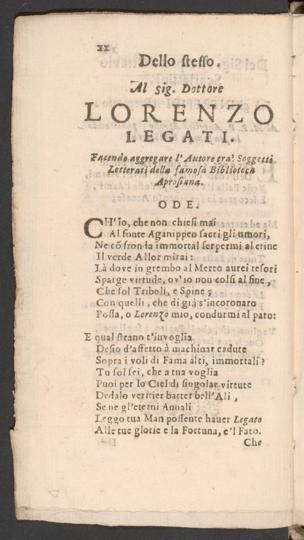 22
Dello stesso.
Al sig. Dottore
LORENZO
LEGATI.
Facendo aggregare l'Autore tra' Soggetti
Letterati della famosa Biblioteca
Aprosiana.
ODE.
CH'io, che non chiesi mai
Al fonte Aganippeo sacri gli umori,
Ne cō fronda immortal serpermi al crine
Il verde Allor mirai:
Là dove in grembo al Metro aurei tesori
Sparge virtude, ov'io non colsi al fine,
Che sol Triboli, e Spine;
Con quelli, che di già s'incoronaro
Possa, o Lorenzo mio, condurmi al paro:
E qual strano t'invoglia
Desio d'affetto à machinar cadute
Sopra i voli di Fama alti, immortali?
Tu sol sei, che a tua voglia
Puoi per lo Ciel di singolar virtute
Dedalo veritier batter bell'Ali,
Se ne gl'eterni Annali
Leggo tua Man possente haver Legato
Alle tue glorie e la Fortuna, e'l Fato.
Che